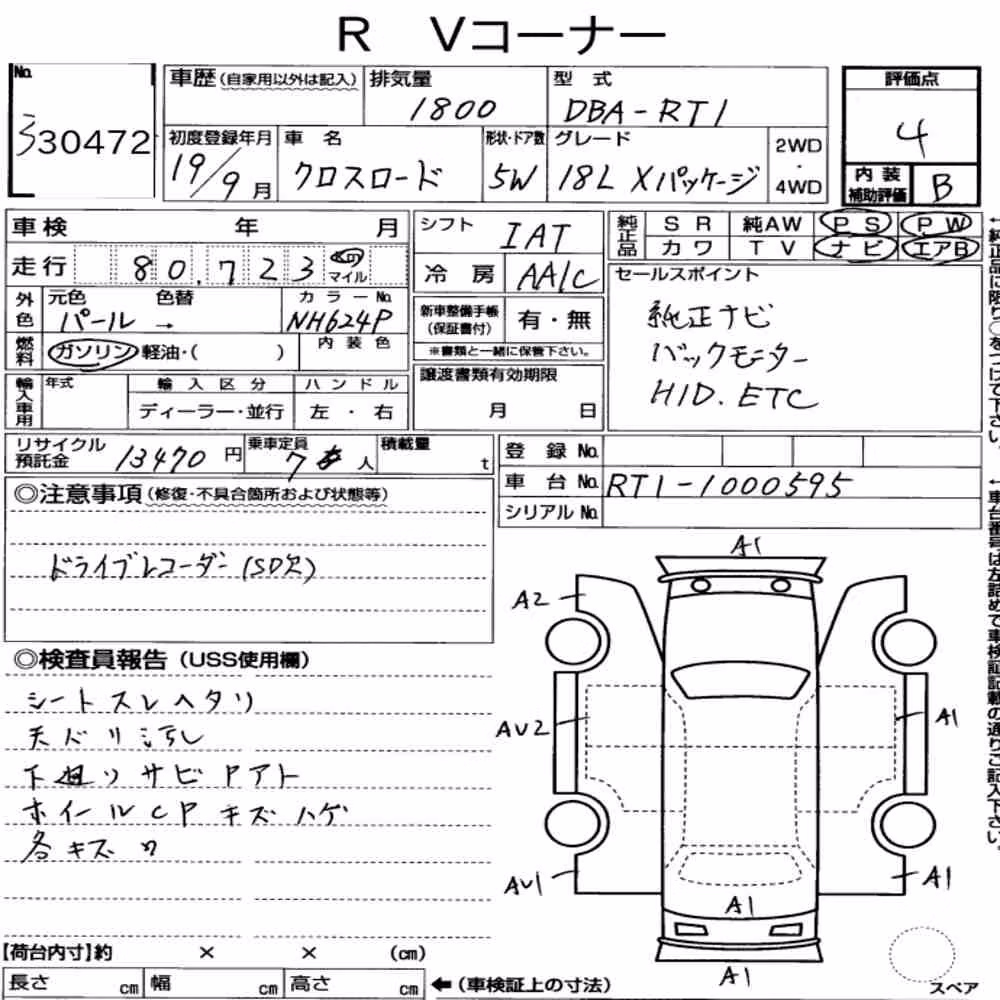 R Vコーナー
No. 330472
車歴(自家用以外は記入) 排気量 1800 型式 DBA-RT1
初度登録年月 19/9月 車名 クロスロード 形状・ドア数 5W グレード 18L Xパッケージ 2WD・4WD
評価点 4
内装補助評価 B
車検 年 月
走行 80,723 km マイル
外色 元色 パール → 色替 カラーNo. NH624P
燃料 ガソリン・軽油・( ) 内装色
輸入車用 年式 輸入区分 ディーラー・並行 ハンドル 左・右
シフト IAT
冷房 AA/C
新車整備手帳(保証書付) 有・無
※書類と一緒に保管下さい。
譲渡書類有効期限
月 日
純正品 SR 純AW PS PW
カワ TV ナビ エアB
セールスポイント
純正ナビ
バックモニター
HID. ETC
リサイクル預託金 13470円 乗車定員 7人 積載量 t
登録No.
車台No. RT1-1000595
シリアルNo.
◎注意事項(修復・不具合箇所および状態等)
ドライブレコーダー(SD欠)
◎検査員報告(USS使用欄)
シートスレヘタリ
天バリ汚し
下廻りサビPアト
ホイールCPキズハゲ
各キズ
A1
A2
AU2
A1
AU1
A1
A1
A1
スペア
【荷台内寸】約 × × (cm)
長さ cm 幅 cm 高さ cm ←(車検証上の寸法)
←純正品に限り○をつけて下さい。
←車台番号は左詰めで車検証記載の通りご記入下さい。